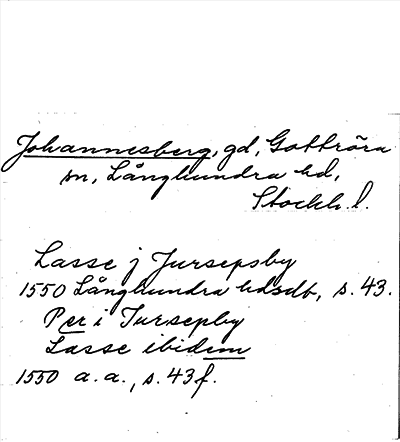 Johannesberg, gd, Gottröra
sn, Långhundra hd,
Stockh. l.
Lasse j Jursepsby
1550 Långhundra hdsdb, s. 43.
Per i Jursepby
Lasse ibidem
1550 a. a., s. 43 f.